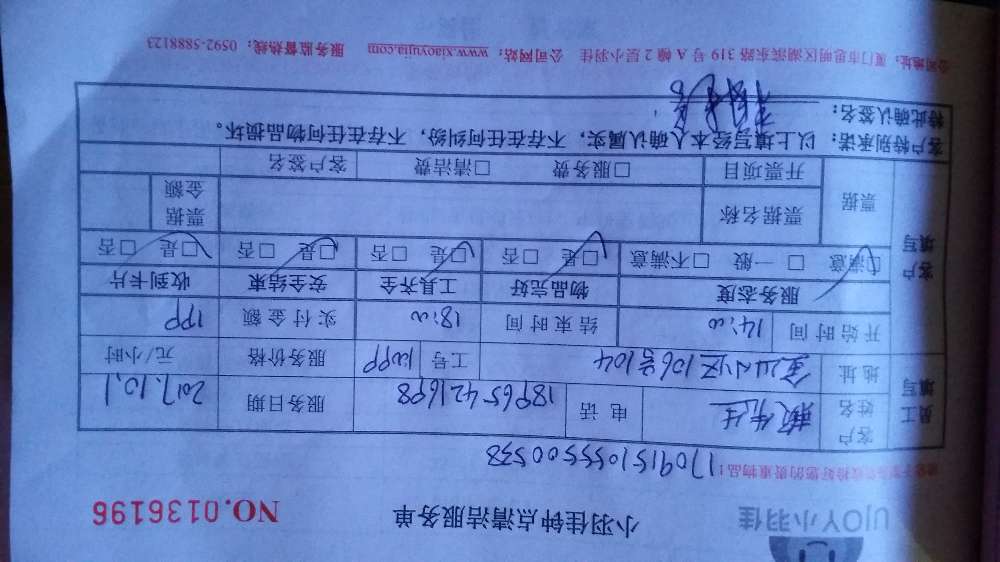 UJOY小羽佳
小羽佳钟点清洁服务单
NO.0136196
您的贵重物品!
1709151055500538
员工填写
客户姓名 赖先生 电话 18965421698 服务日期 2017.10.1
地址 金山小区106号104 工号 服务价格 元/小时
开始时间 14:00 结束时间 18:00 实付金额 199
客户填写
服务态度 物品完好 工具齐全 安全结束 收到卡片
□满意 □一般 □不满意 □是 □否 □是 □否 □是 □否 □是 □否
票据 票据名称 票据金额
开票项目 □服务费 □清洁费 客户签名
客户特别承诺:以上填写经本人确认属实,不存在任何纠纷,不存在任何物品损坏。
特此确认签名:
公司地址:厦门市思明区湖滨东路319号A幢2层小羽佳 公司网站:www.xiaoyujia.com 服务监督热线:0592-5888123